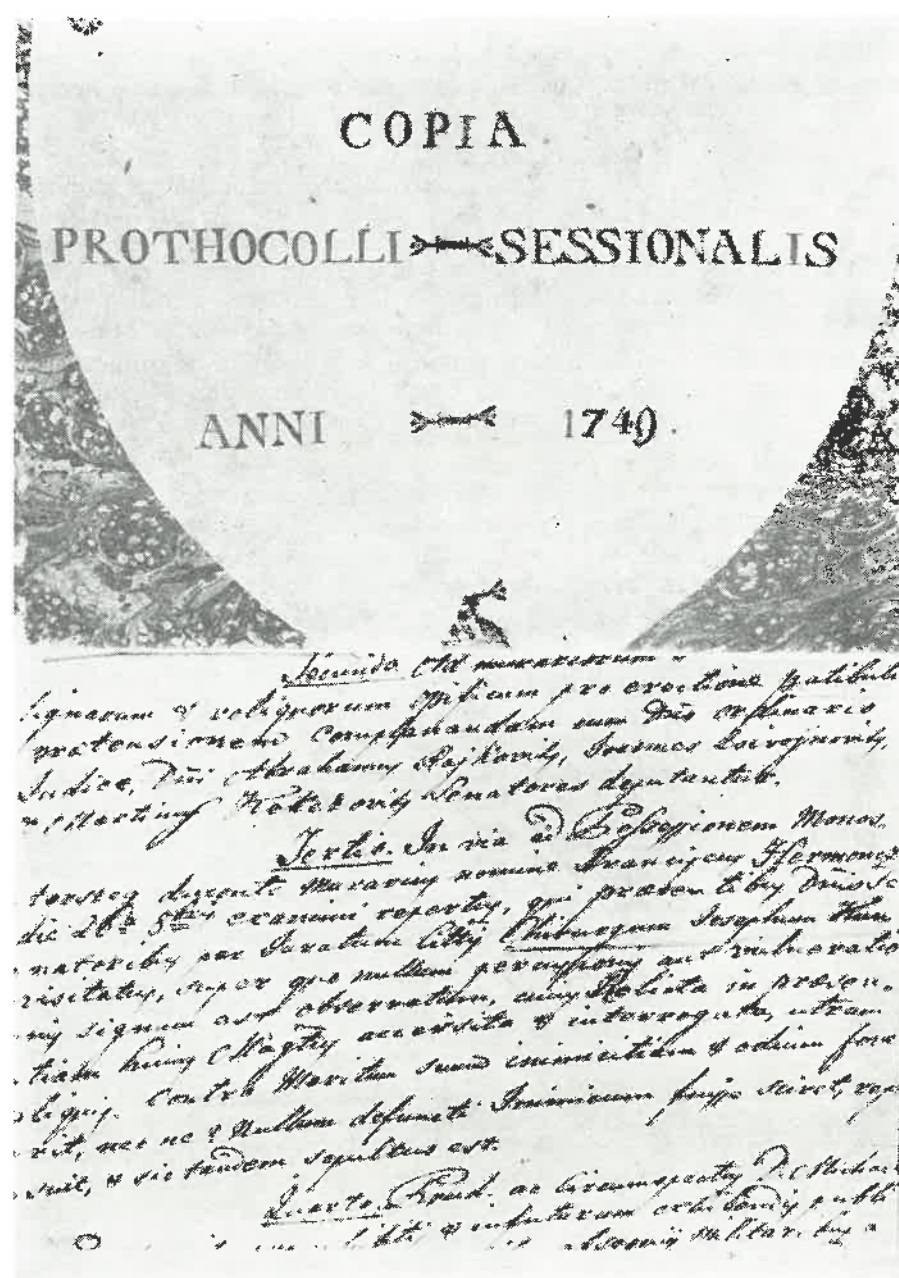 COPIA
PROTHOCOLLI SESSIONALIS
ANNI 1749.
Secundo. Ad murariorum
lignariorum & reliquorum opificum pro erectione patibuli
prætensionem complanandam cum Dño ordinario
Judice, Dñi Abrahamus Rajkovits, Joannes
& Martinus Senatores deputantur.
Tertio. In via ad Possessionem Monos
torszeg ducenti murarius nomine Franciscus
die 26ta 8bris exanimis repertus, qui præsentibus Dñis Se
natoribus per Juratum Cittis Chirurgum Josephum
visitatus, super quo nullum percussionis aut vulneratio
nis signum est observatum, cujus Relicta in præsen
tiam hujus Magtus accersita & interrogata, utrum
aliquis contra Maritum suum inimicitiam & odium fove
rit, nec ne? Nullum defuncti Inimicum fuisse sciret,
suit, & sic tandem sepultus est.
Quarto. Prud. ac Circumspectus D. Micha
& infuturum exhibendis publi
militaribus